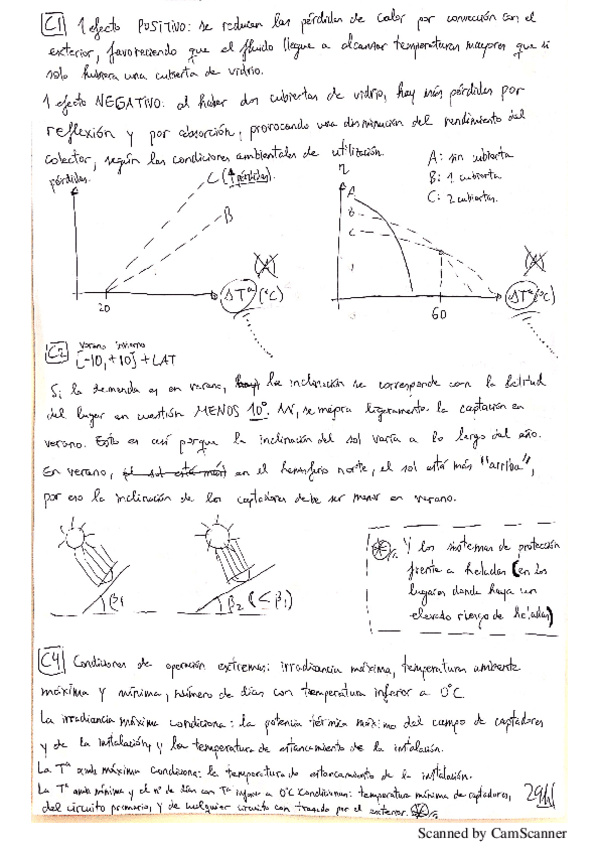 C1 1 efecto POSITIVO: se reducen las pérdidas de calor por convección con el
exterior, favoreciendo que el fluido llegue a alcanzar temperaturas mayores que si
solo hubiera una cubierta de vidrio.
1 efecto NEGATIVO: al haber dos cubiertas de vidrio, hay más pérdidas por
reflexión y por absorción, provocando una disminución del rendimiento del
colector, según las condiciones ambientales de utilización.
A: sin cubierta
B: 1 cubierta
C: 2 cubiertas
pérdidas
C (↑ pérdidas)
B
20
ΔTª (ºC)
η
A
B
C
60
ΔTª (ºC)
C2 verano invierno
[-10, +10] + LAT
Si la demanda es en verano, la inclinación se corresponde con la latitud
del lugar en cuestión MENOS 10º. Así, se mejora ligeramente la captación en
verano. Esto es así porque la inclinación del sol varía a lo largo del año.
En verano, en el hemisferio norte, el sol está más "arriba",
por eso la inclinación de los captadores debe ser menor en verano.
β1
β2 (< β1)
y los sistemas de protección
frente a heladas (en los
lugares donde haya un
elevado riesgo de heladas)
C4 Condiciones de operación extremas: irradiancia máxima, temperatura ambiente
máxima y mínima, número de días con temperatura inferior a 0ºC
La irradiancia máxima condiciona: la potencia térmica máxima del campo de captadores
y de la instalación, y la temperatura de estancamiento de la instalación.
La Tª amb máxima condiciona: la temperatura de estancamiento de la instalación.
La Tª amb mínima y el nº de días con Tª inferior a 0ºC condicionan: temperatura mínima de captadores,
del circuito primario, y de cualquier circuito con trazado por el exterior.
Scanned by CamScanner